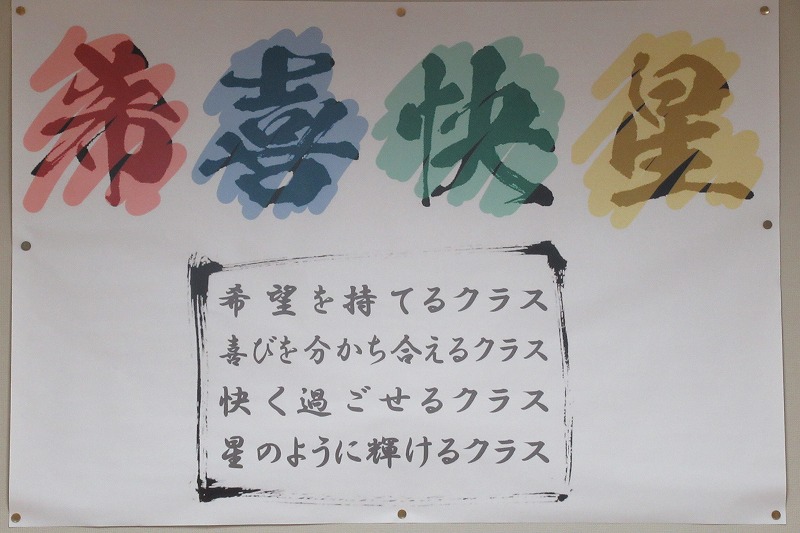 希喜快星
希望を持てるクラス
喜びを分かち合えるクラス
快く過ごせるクラス
星のように輝けるクラス